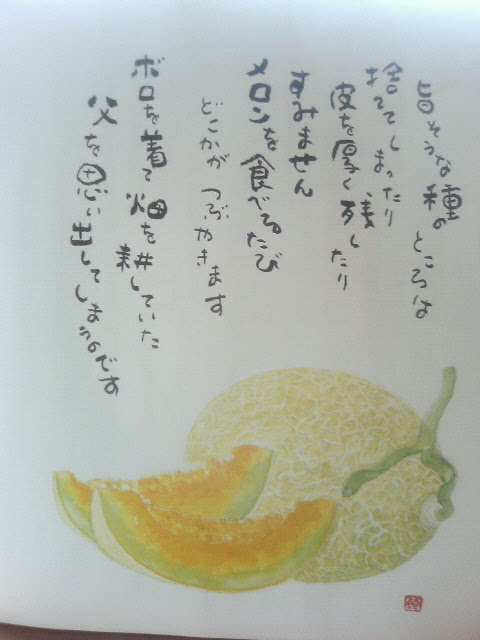 旨そうな種のところは
捨ててしまったり
皮を厚く残したり
すみません
メロンを食べるたび
どこかが つぶやきます
ボロを着て 畑を耕していた
父を思い出してしまうのです